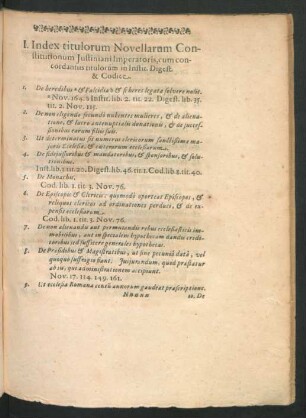 I. Index titulorum Novellarum Con-
stitutionum Justiniani Imperatoris, cum con-
cordantiis titulorum in Instit. Digest.
& Codice.
1. De heredibus & Falcidia & si heres legata solvere nolit.
Nov. 164. Instit. lib. 2. tit. 22. Digest. lib. 35.
tit. 2. Nov. 115.
2. De non eligendo secundò nubentes mulieres, & de aliena-
tione, & lucro antenuptialis donationis, & de succes-
sionibus earum filiorum.
3. Ut determinatus sit numerus clericorum sanctissimæ ma-
joris Ecclesiæ, & cæterarum ecclesiarum.
4. De fidejussoribus & mandatoribus, & sponsoribus, & solu-
tionibus.
Inst. lib. 3. tit. 20. Digest. lib. 46. tit. 1. Cod. lib. 8. tit. 40.
5. De Monachis.
Cod. lib. 1. tit. 3. Nov. 76.
6. De Episcopis & Clericis, quomodò oporteat Episcopos, &
reliquos clericos ad ordinationes perduci, & de ex-
pensis ecclesiarum.
Cod. lib. 1. tit. 3. Nov. 76.
7. De non alienandis aut permutandis rebus ecclesiasticis im-
mobilibus, aut in specialem hypothecam dandis credi-
toribus sed sufficere generales hypothecas.
8. De Præsidibus & Magistratibus, ut sine pecuniâ datâ, vel
quoquo suffragio fiant. Jusjurandum, quod præstatur
ab iis, qui administrationem accipiunt.
Nov. 17. 114. 149. 161.
9. Ut ecclesia Romana centū annorum gaudeat præscriptione.
10. De